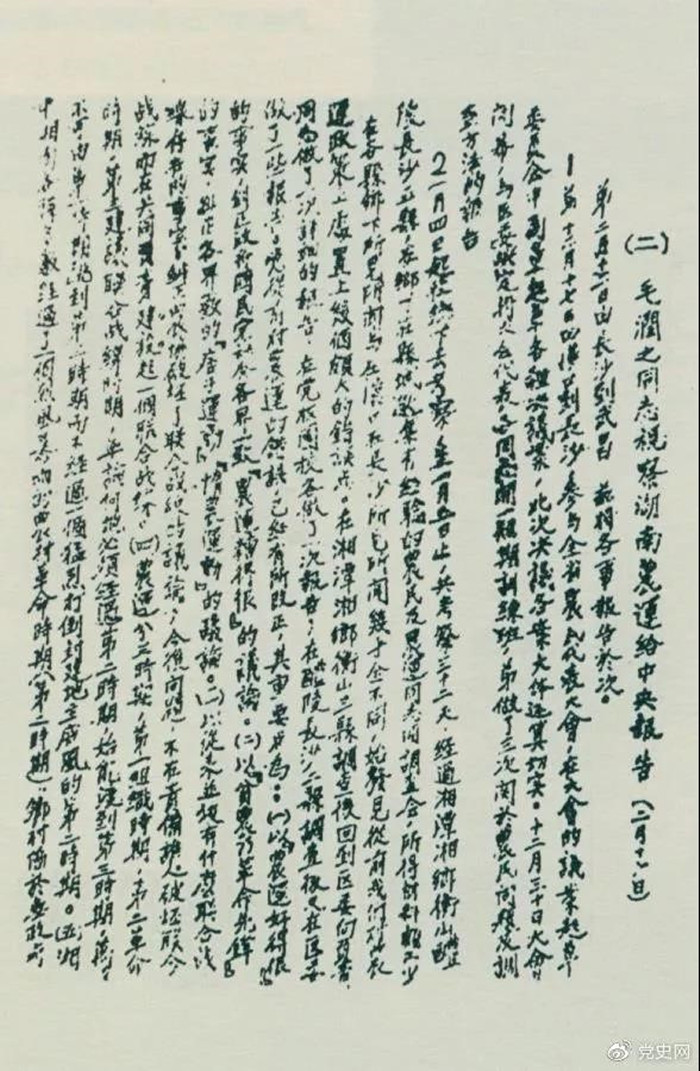 (二) 毛潤之同志視察湖南農運給中央報告 (二月十六日)
弟二月十二日由長沙到武昌 茲將各事報告於次。
1 弟十二月十七日由漢到長沙，參與全省農民代表大會，在大會的議案起草
委員會中 起草各種決議案，此次決議各案大体還算切實。十二月三十日大會
閉幕， 區委決定 大會代表， 開一短期訓練班，弟做了三次關於農民問題及調
查方法的報告
2 一月四日起 下去考察，至二月五日止，共考察三十二天，經過湘潭湘鄉衡山醴
陵長沙五縣，在鄉下，在縣城，召集有經驗的農民及農運同志開調查會，所得材料頗不少
在各縣鄉下所見所聞与在漢口在長沙所見所聞幾乎全不同，始發見從前我們對農
運政策上處置上幾個頗大的錯誤点。在湘潭湘鄉衡山三縣調查後回到區委向 著
同志做了一次詳細的報告，在党校團校各做了一次報告；在醴陵長沙二縣調查後又在區委
做了一些報告。党從前對農運的錯誤，已經有所改正，其重要者為：(一)以『農運好得很』
的事實，糾正政府國民党社会各界一致『農運糟得很』的議論。(二)以『貧農乃革命先鋒』
的事實，糾正各界一致的『痞子運動』『惰農運動』的議論。(三)以從來並沒有什麼聯合戰
線存在的事實，糾正農協破壞了聯合戰線的議論；今後問題，不在責備誰人破壞聯合
战線而在共同負責建設起一個聯合战線。(四)農運分三時期，第一組織時期，第二革命
時期，第三建設聯合战線時期，無論何地必須經過第二時期，始能達到第三時期，萬
不 由第一時期 到第三時期而不經過一個猛烈打倒封建地主威風的第二時期。
 了 農村革命時期(第二時期)，鄉村